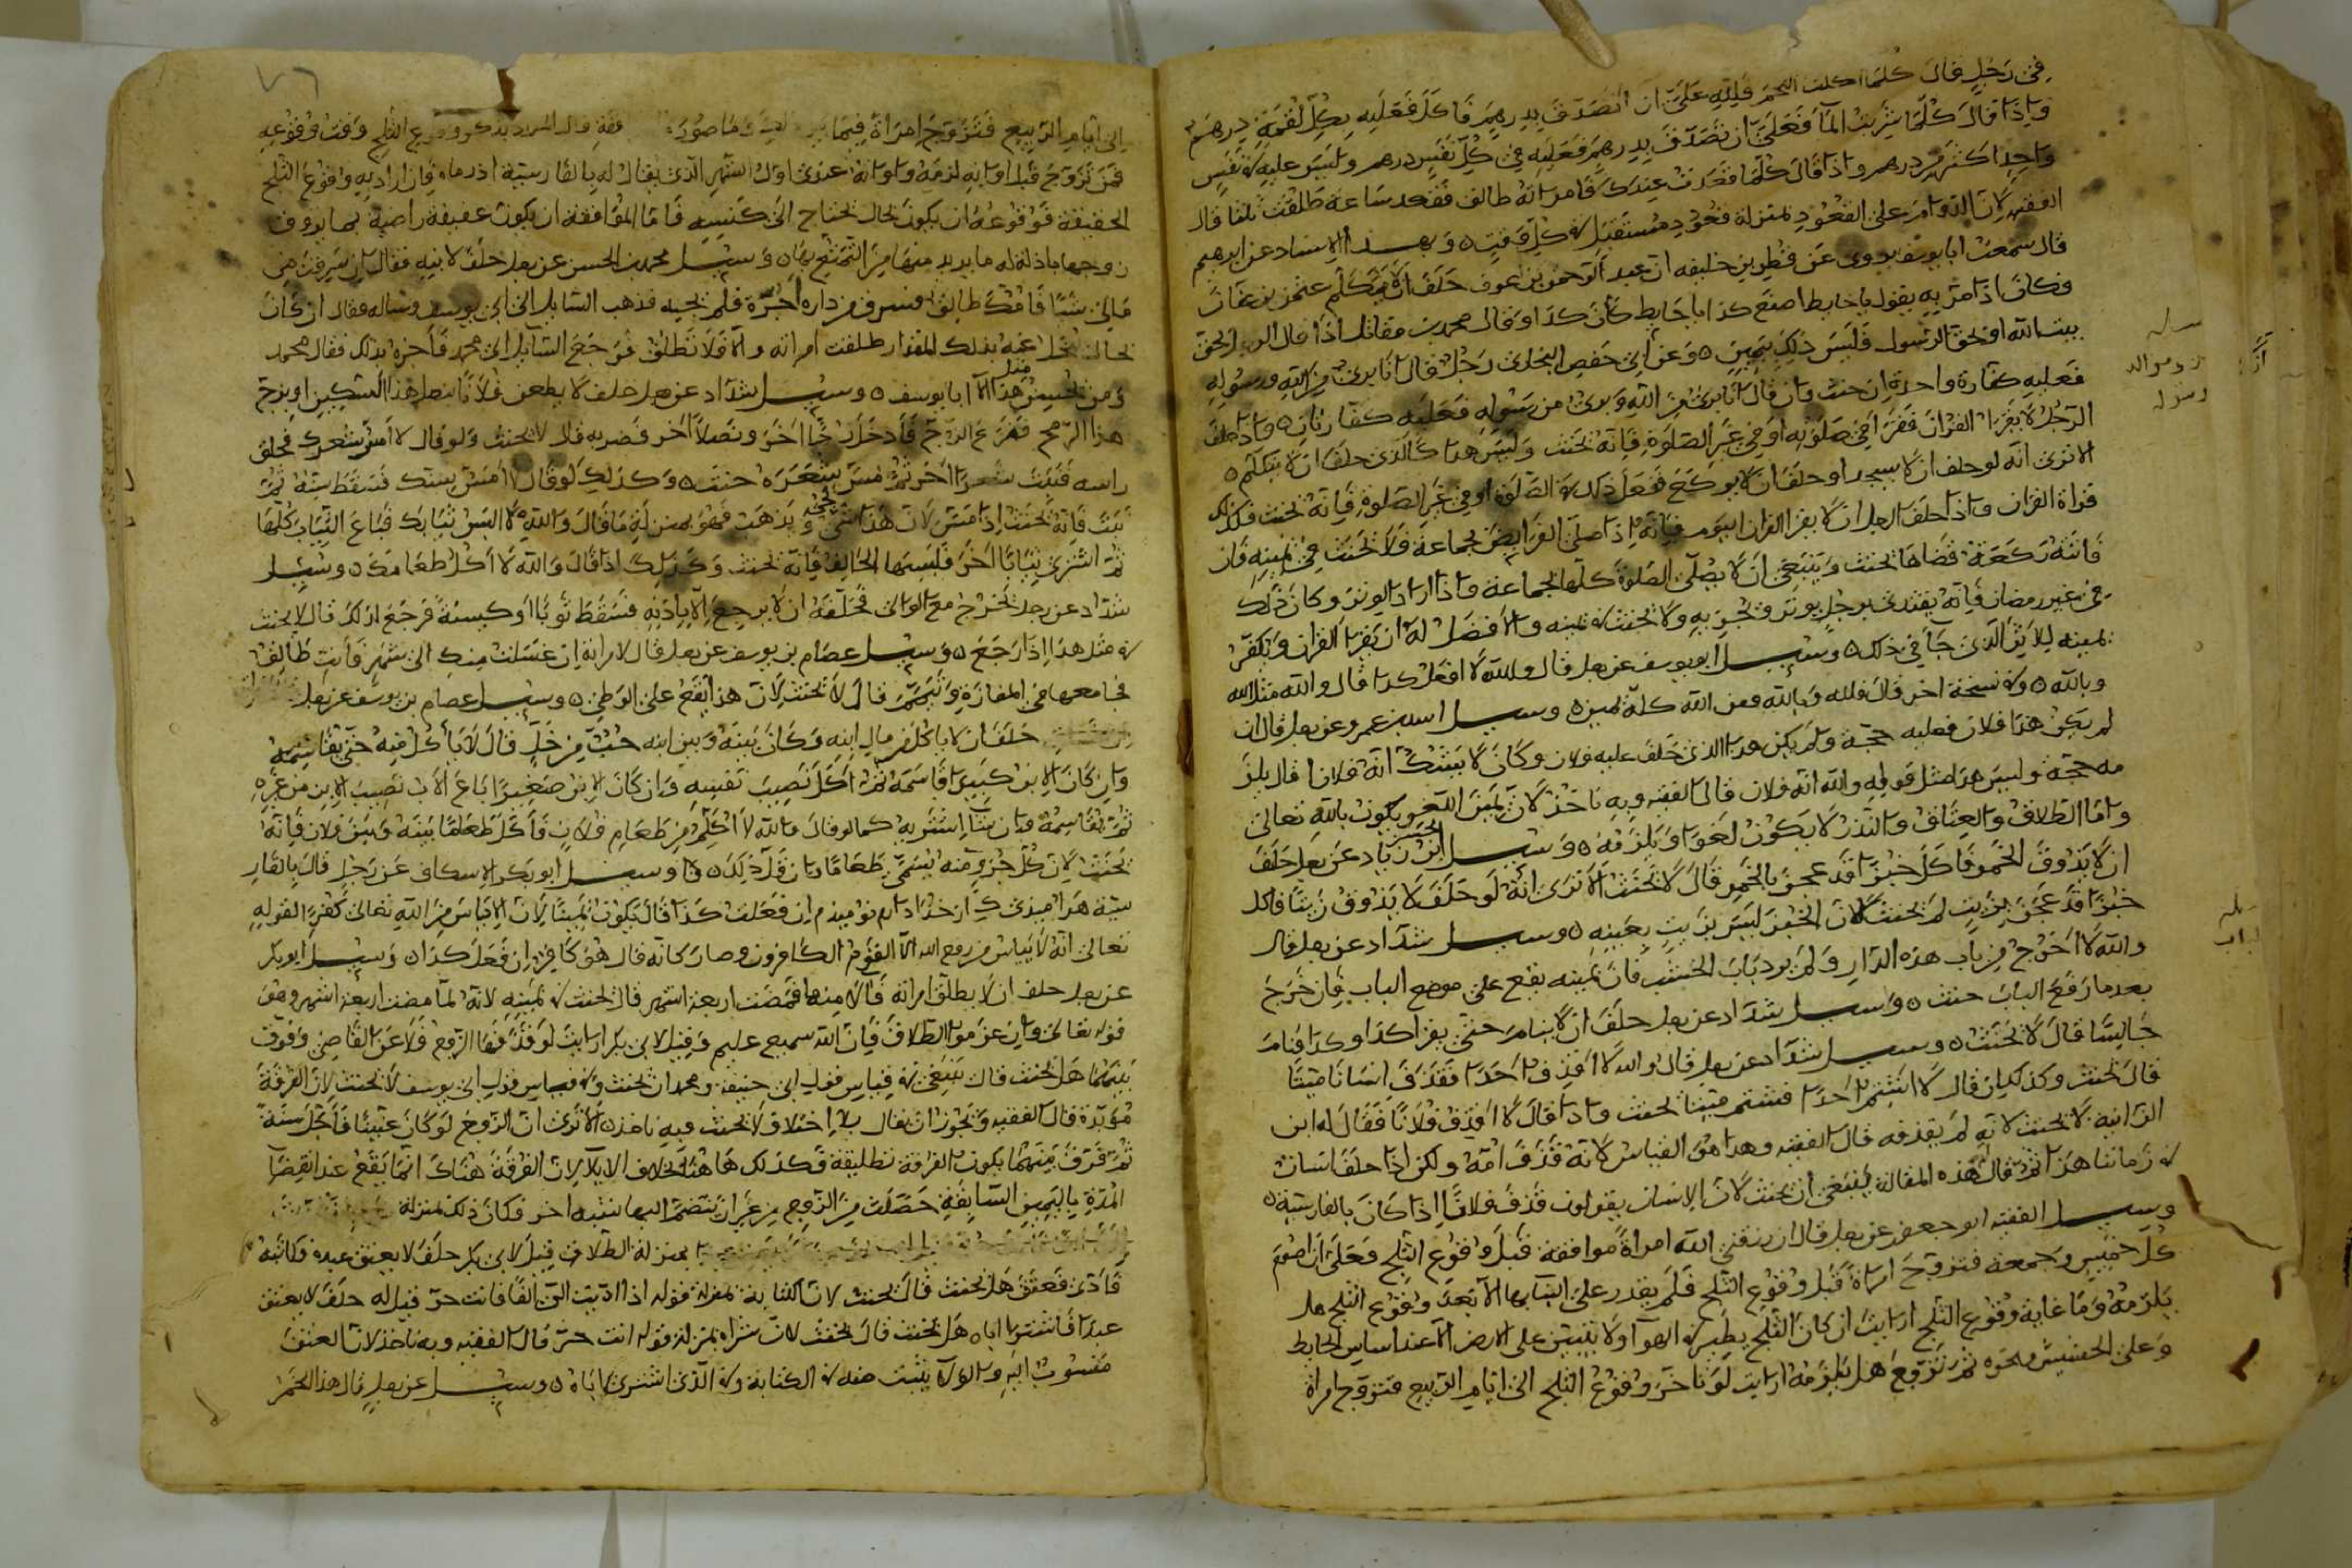 في رجل قال كلما اكلت اللحم فلله علي ان اتصدق بدرهم فاكل فعليه بكل لقمة درهم
واذا قال كلما شربت الما فعلي ان اتصدق بدرهم فعليه في كل نفس درهم وليس عليه في نفس
واحد اكثر من درهم واذا قال كلما قعدت عندك فامراته طالق فقعد ساعة طلقت ثلثا قال
الفقيه لان الدوام على القعود بمنزلة قعود مستقبل في كل وقت وبهذا الاسناد عن ابرهيم
قال سمعت ابا يوسف يروى عن فطر بن خليفه ان عبد الرحمن بن عوف حلف ان لا يتكلم عثمن بن عفان
وكان اذا مر به يقول يا حايط اصنع كذا يا حايط كان كذا وقال محمد بن مقاتل اذا قال الرجل لحق
بيت الله او بحق الرسول فليس ذلك بيمين وعن ابي حفص البخاري رجل قال انا بري من الله ورسوله
فعليه كفارة واحدة ان حنث وان قال انا بري من الله وبري من رسوله فعليه كفارتان واذا حلف
الرجل لا يقرا القران فقرا في صلوته او في غير الصلوة فانه يحنث وليس هذا كالذي حلف ان لا يتكلم
الا ترى انه لو حلف ان لا يسجد او حلف ان لا يركع ففعل ذلك في الصلوة او في غير الصلوة فانه يحنث فكذلك
قراة القران واذا حلف الرجل ان لا يقرا القران اليوم فانه اذا صلى الفرايض بجماعة فلا يحنث في يمينه فان
فاتته ركعة فقضاها يحنث وينبغي ان لا يصلي الصلوة كلها الا بجماعة واذا اراد الوتر وكان ذلك
في غير رمضان فانه يقتدي برجل يوتر فيجزيه ولا يحنث في يمينه والافضل له ان يقرا القران ويكفر
يمينه للاثر الذي جا في ذلك وسيل ابو يوسف عن رجل قال ولله لا افعل كذا قال والله مثل الله
وبالله وفي نسخة اخر قال فلله وبالله ومن الله كله يمين وسيل اسد بن عمرو عن رجل قال ان
لم يكن هذا فلان فعليه حجة ولم يكن هذا الذي حلف عليه فلان وكان لا يشك انه فلان قال يلز
مه حجة وليس هذا مثل قوله والله انه فلان قال الفقيه وبه ناخذ لان يمين اللغو يكون بالله تعالى
واما الطلاق والعتاق والنذر لا يكون لغوا ويلزمه وسيل الحسن ابن زياد عن رجل حلف
ان لا يذوق الخمر فاكل خبزا قد عجن بالخمر قال لا يحنث الا ترى انه لو حلف لا يذوق زيتا فاكل
خبزا قد عجن بزيت لم يحنث لان الخبز ليس بزيت بعينه وسيل شداد عن رجل قال
والله لا اخرج من باب هذه الدار ولم يرد باب الخشب فان يمينه يقع على موضع الباب فان خرج
بعد ما رفع الباب حنث وسيل شداد عن رجل حلف ان لا ينام حتى يقرا كذا وكذا فنام
جالسا قال لا يحنث وسيل شداد عن رجل قال والله لا اقذف احدا فقذف انسانا ميتا
قال يحنث وكذلك ان قال لا اشتم احدا فشتم ميتا يحنث واذا قال لا اقذف فلانا فقال له ابن
الزانية لا يحنث لانه لم يقذفه قال الفقيه وهذا هو القياس لانه قذف امه ولكن اذا حلف انسان
في زماننا هذا ثم قال له هذه المقالة ينبغي ان يحنث لان الانسان يقولون قذف فلانا اذا كان بالفارسية
وسيل الفقيه ابو جعفر عن رجل قال ان رزقني الله امراة موافقة قبل وقوع الثلج فعلي ان اصوم
كل خميس وجمعة فتزوج امراة قبل وقوع الثلج فلم يقدر على البنا بها الا بعد وقوع الثلج هل
يلزمه وما غاية وقوع الثلج ارايت ان كان الثلج يطير في الهوا ولا يتبين على الارض الا عند اساس الحايط
وعلى الحشيش ونحوه ثم تزوج هل يلزمه ارايت لو تاخر وقوع الثلج الى ايام الربيع فتزوج امراة
سيله
رسوله
سيله
٧٦
الى ايام الربيع فتزوج امراة فيما وما صورة وقوع الثلج وقت وقوعه
فمن تزوج قبل اوانه لزمه واوانه عندي اول الشهر الذي يقال له بالفارسية اذر ماه فان اراد به وقوع الثلج
الحقيقة فوقوعه ان يكون بحال يحتاج الى كنسه فاما الموافقة ان يكون عفيفة راضية بما يروف
زوجها باذلة له ما يريد منها من التمتع بها وسيل محمد بن الحسن عن رجل حلف لابنه فقال ان سرقت من
مالي شيا فامك طالق فسرق من داره اجرة فلم يجبه فذهب السايل الى ابي يوسف وساله فقال ان كان
يبخل عنه بذلك المقدار طلقت امراته والا فلا تطلق فرجع السايل الى محمد فاخبره بذلك فقال محمد
ومن يحسن مثل هذا الا ابا يوسف وسيل شداد عن رجل حلف لا يطعن فلانا بنصل هذا السكين او بزج
هذا الرمح فنزع الزج فادخل زجا اخر ونصلا اخر فضربه قال لا يحنث ولو قال لا امس شعرك فحلق
راسه فنبت شعرا اخر ثم مس شعره حنث وكذلك لو قال لا امس سنك فسقط سنه ثم
نبت فانه يحنث اذا مس لان هذا شي يجي ويذهب فهو بمنزلة ما قال والله لا البس ثيابك فباع الثياب كلها
ثم اشترى ثيابا اخر فلبسها الحالف فانه يحنث وكذلك اذا قال والله لا اكل طعامك وسيل
شداد عن رجل يخرج مع الوالي فحلفه ان لا يرجع الا باذنه فسقط ثوبا او كيسه فرجع لذلك قال لا يحنث
في مثل هذا اذا رجع وسيل عصام بن يوسف عن رجل قال لامراته ان غسلت منك الى شهر فانت طالق
فجامعها في المفازة وتيمم قال لا يحنث لان هذا يقع على الوطي وسيل عصام بن يوسف عن رجل
حلف ان لا ياكل من مال ابنه وكان بينه وبين ابنه حب من خل قال لا ياكل منه حتى يقاسمه
وان كان الابن كبيرا قاسمه ثم اكل نصيب نفسه وان كان الابن صغيرا باع الاب نصيب الابن من غيره
ثم يقاسمه وان شا اشتريه كما لو قال والله لا اكل من طعام فلان فاكل طعاما بينه وبين فلان فانه
يحنث لان كل جزو منه يسمى طعاما وان قل ذلك وسيل ابو بكر الاسكاف عن رجل قال بالفار
تعالى انه لا يياس من روح الله الا القوم الكافرون وصار كانه قال هو كافر ان فعل كذا وسيل ابو بكر
عن رجل حلف ان لا يطلق امراته فالى منها فمضت اربعة اشهر قال يحنث في يمينه لانه لما مضت اربعة اشهر وهو
قوله تعالى وان عزموا الطلاق فان الله سميع عليم وقيل لابي بكر ارايت لو قذفها الزوج فلاعن القاضي وفرق
بينهما هل يحنث قال ينبغي في قياس قول ابي حنيفه ومحمد ان يحنث وفي قياس قول ابي يوسف لا يحنث لان الفرقة
مؤبدة قال الفقيه ويجوز ان يقال بلا اختلاف لا يحنث وبه ناخذ الا ترى ان الزوج لو كان عنينا فاجل سنة
ثم فرق بينهما يكون الفرقة تطليقة فكذلك ها هنا بخلاف الايلا لان الفرقة هناك انما يقع عند انقضا
المدة باليمين السابقة حصلت من الزوج من غير ان تنضم اليها سببه اخر فكان ذلك بمنزلة
بمنزلة الطلاق قيل لابي بكر حلف لا يعتق عبده فكاتبه
فادى فعتق هل يحنث قال يحنث لان الكتابة بمنزلة قوله اذا اديت الي الفا فانت حر قيل له حلف لا يعتق
عبدا فاشترى اباه هل يحنث قال يحنث لان شراه بمنزلة قوله انت حر قال الفقيه وبه ناخذ لان العتق
منسوب اليه والولا يثبت منه في الكتابة وفي الذي اشترى اباه وسيل عن رجل قال هذا الخمر